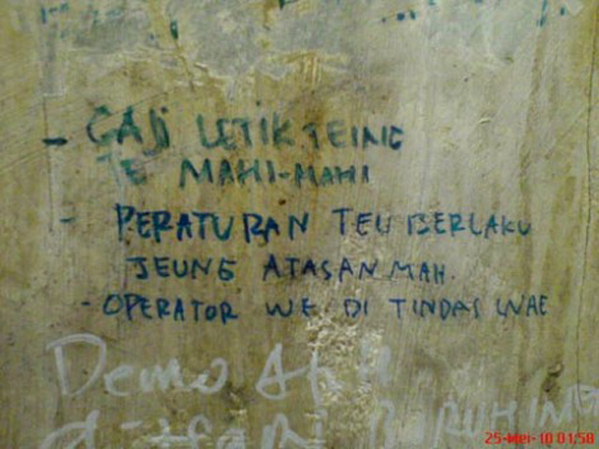 - GAJI LETIK TEING
TE MAHI-MAHI
- PERATURAN TEU BERLAKU
JEUNG ATASAN MAH.
- OPERATOR WE DI TINDAS WAE
Demo
25-Mei-10 01:58